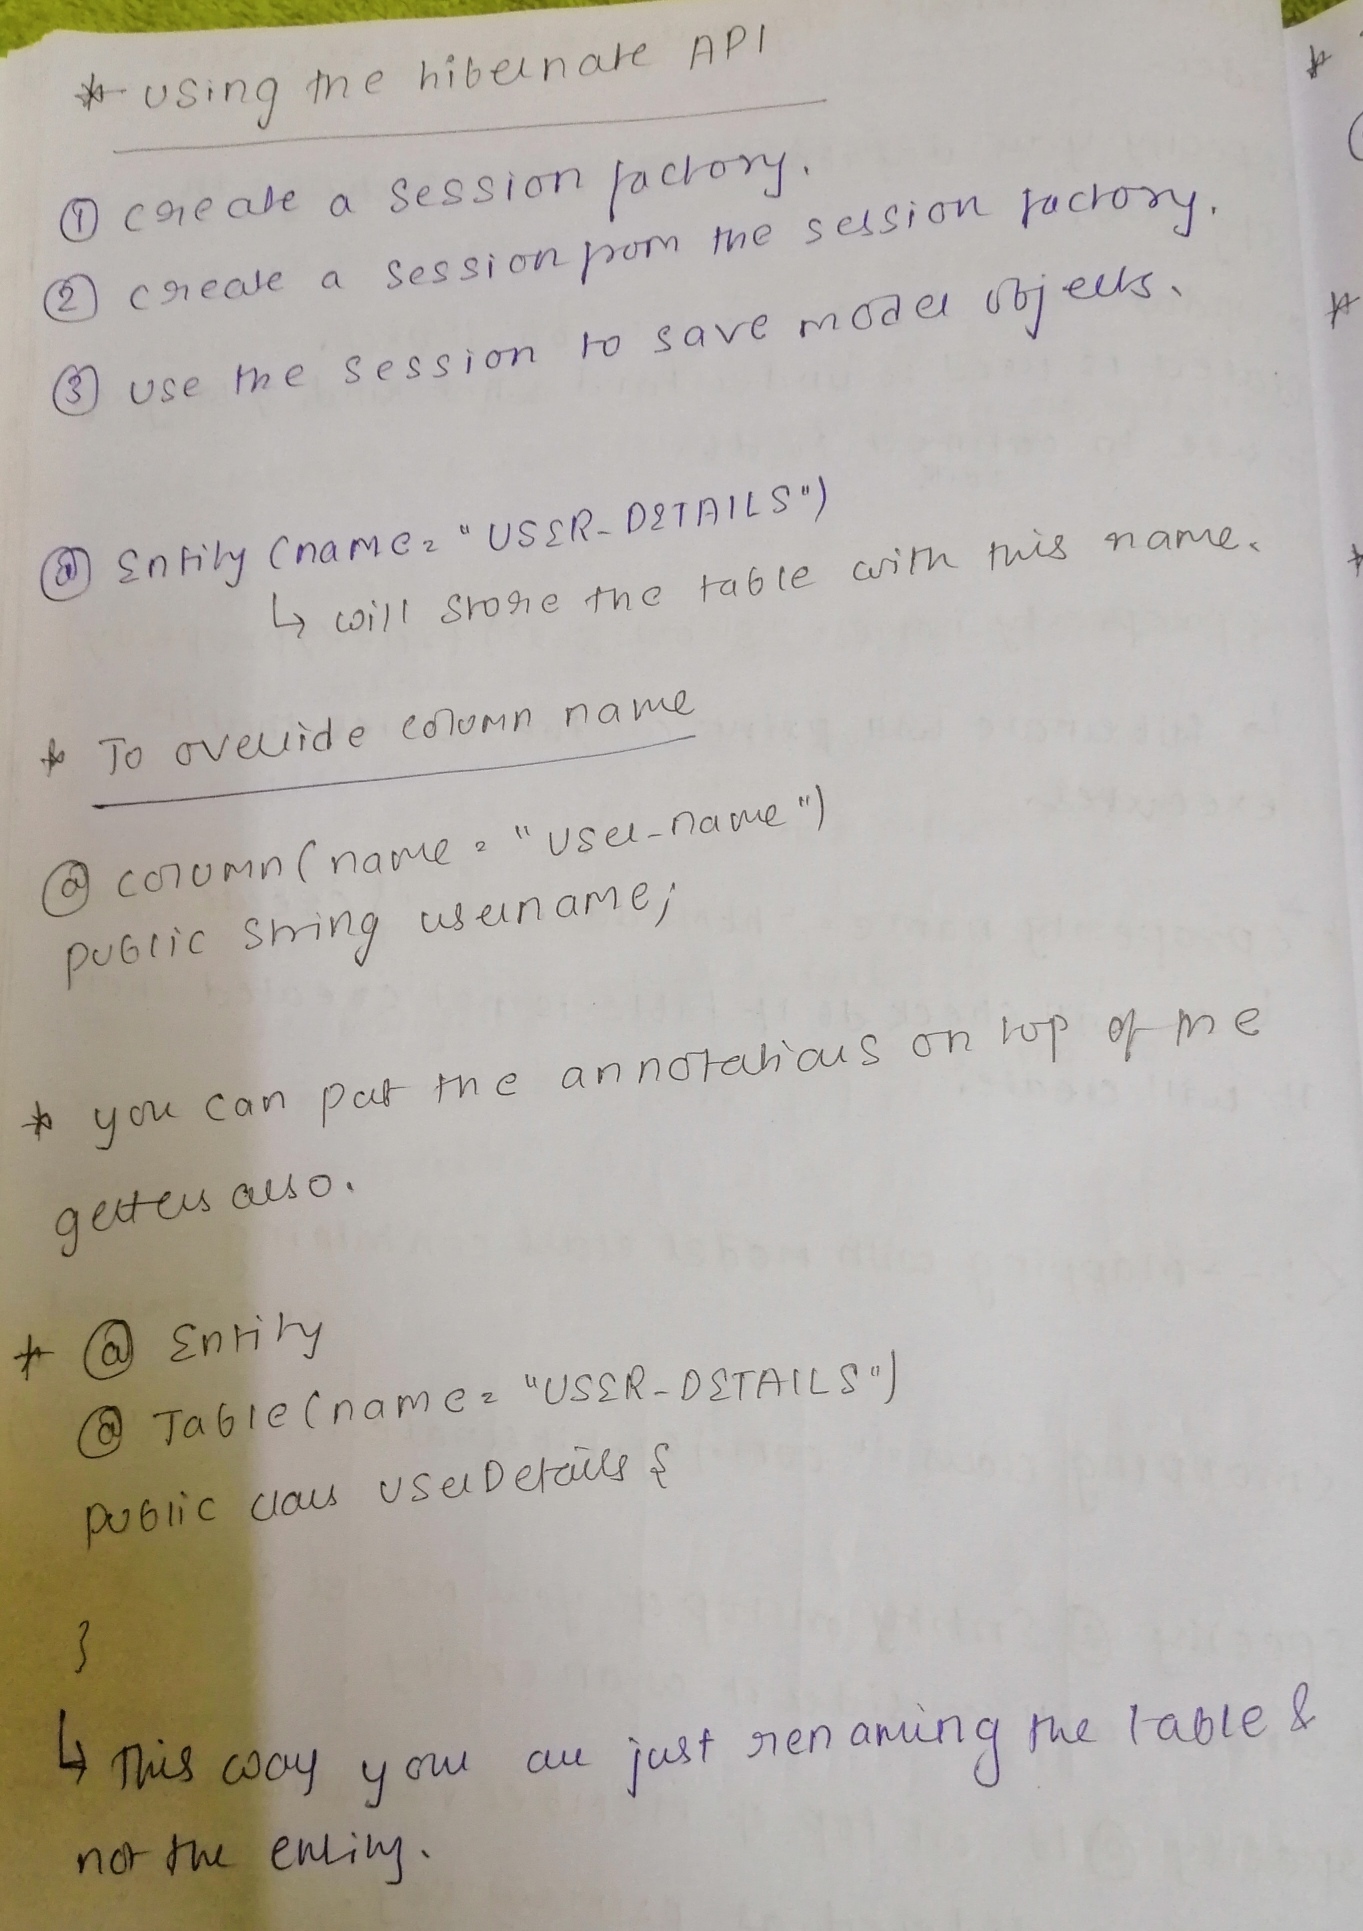 * Using the hibernate API
① create a session factory.
② create a session from the session factory.
③ Use the session to save model objects.
@ Entity (name = "USER_DETAILS")
↳ will store the table with this name.
* To override column name
@ column (name = "user_name")
public string username;
* you can put the annotations on top of the
getters also.
* @ Entity
@ Table (name = "USER_DETAILS")
public class UserDetails {
}
↳ This way you are just renaming the table &
not the entity.